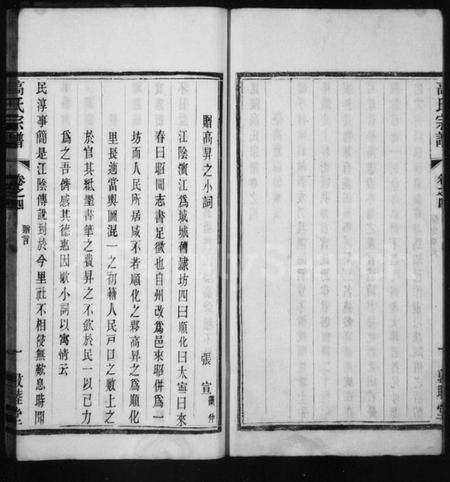 贈高昇之小詞
張宣
江陰濱江爲城城傳隷坊四曰順化曰太寧曰來
春曰昭聞志書足徵也自州改爲邑來昭併爲一
坊而人民所居咸不若順化之夥高昇之爲順化
里長適當輿圖混一之初籍人民戸口之數上之
於官其紙墨書筆之費昇之不歛於民一以己力
爲之吾儕感其德惠因歌小詞以寓情云
民淳事簡是江陰傳説到於今里社不相侵無歎息時聞
高氏宗譜
卷之四
贈言
一
敦睦堂
高氏宗譜
卷之四
敦睦堂